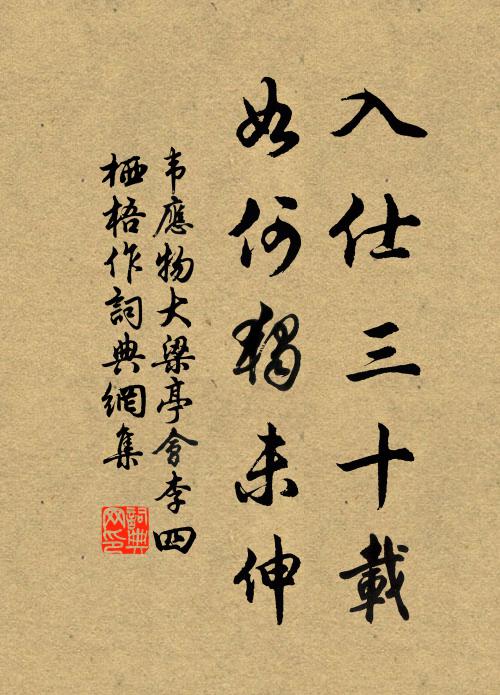 入仕三十載
如何獨未伸
韦應物大梁亭會李四
栖梧作詞典網集
詞典网印